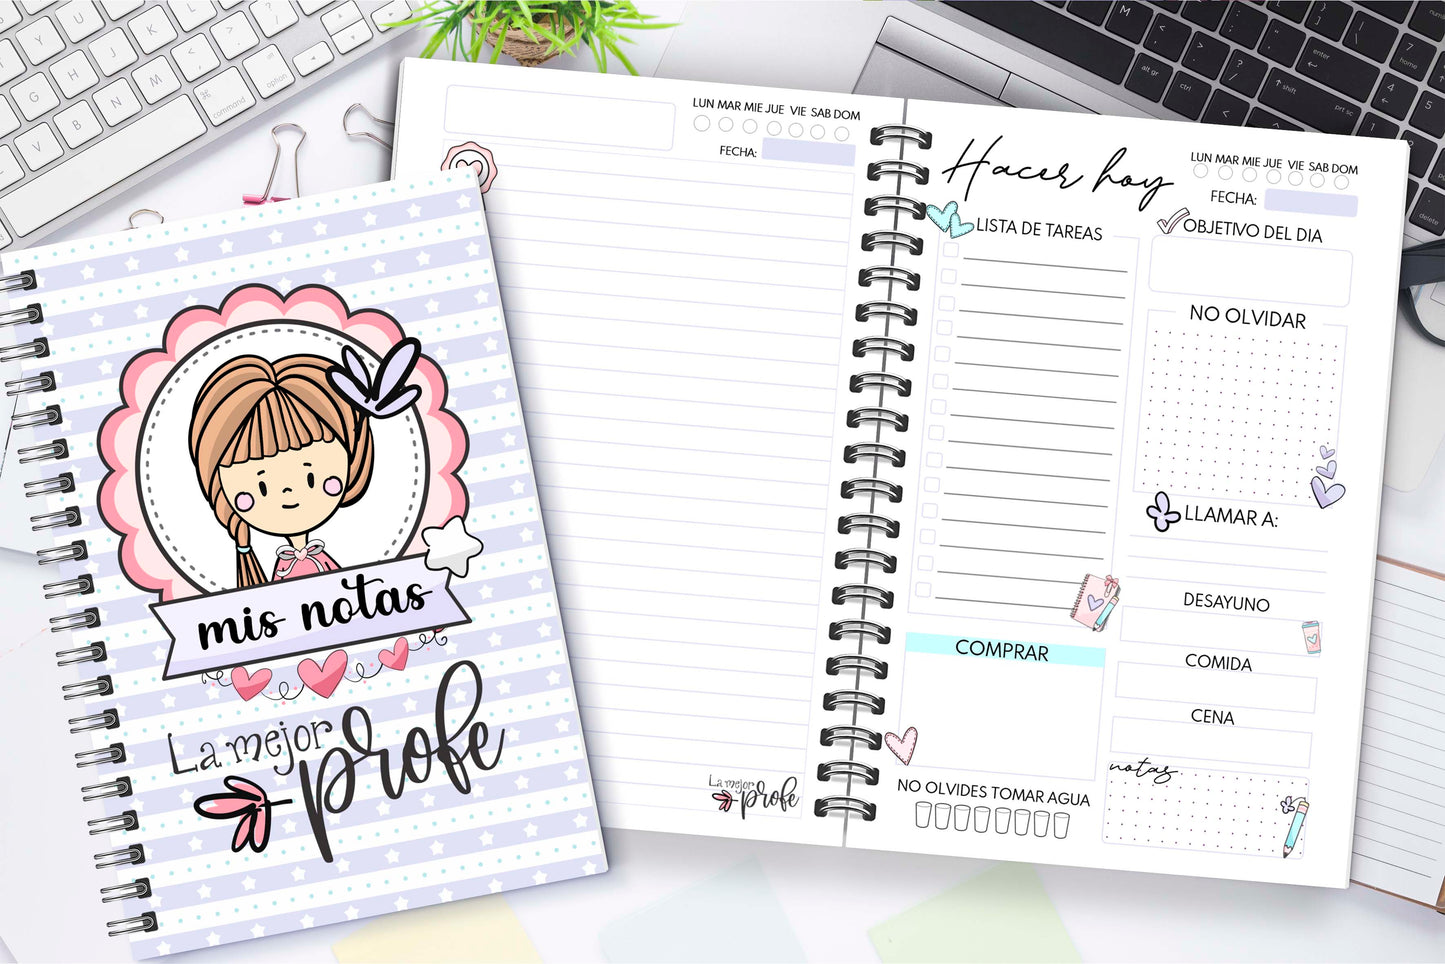 mis notas
La mejor
profe
LUN MAR MIE JUE VIE SAB DOM
FECHA:
La mejor
profe
Hacer hoy
LUN MAR MIE JUE VIE SAB DOM
FECHA:
LISTA DE TAREAS
OBJETIVO DEL DIA
NO OLVIDAR
LLAMAR A:
DESAYUNO
COMIDA
CENA
COMPRAR
notas
NO OLVIDES TOMAR AGUA
command
option
alt gr
ctrl
shift
enter
prt sc
home
delete